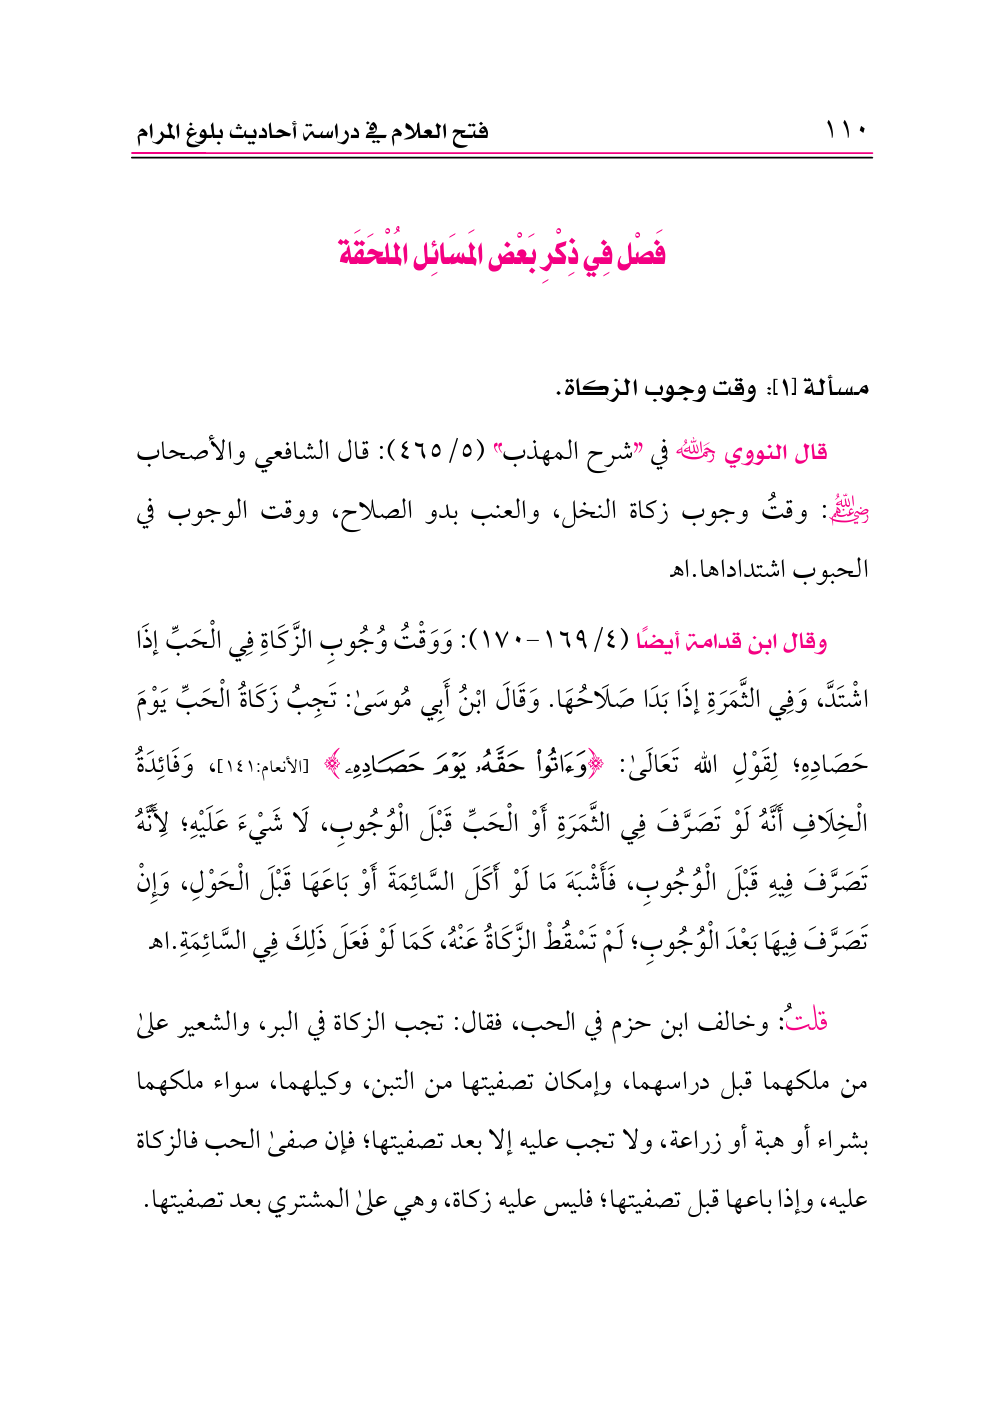 ١١٠ فتح العلام في دراسة أحاديث بلوغ المرام
فَصْل فِي ذِكْرِ بَعْض المَسَائِل المُلْحَقَة
مسألة [١]: وقت وجوب الزكاة.
قال النووي رَحِمَهُ اللَّهُ في ”شرح المهذب“ (٥/ ٤٦٥): قال الشافعي والأصحاب
رَضِيَ اللَّهُ عَنْهُمْ: وقتُ وجوب زكاة النخل، والعنب بدو الصلاح، ووقت الوجوب في
الحبوب اشتداداها.اهـ
وقال ابن قدامة أيضًا (٤/ ١٦٩-١٧٠): وَوَقْتُ وُجُوبِ الزَّكَاةِ فِي الْحَبِّ إذَا
اشْتَدَّ، وَفِي الثَّمَرَةِ إذَا بَدَا صَلَاحُهَا. وَقَالَ ابْنُ أَبِي مُوسَىٰ: تَجِبُ زَكَاةُ الْحَبِّ يَوْمَ
حَصَادِهِ؛ لِقَوْلِ الله تَعَالَىٰ: ﴿وَءَاتُواْ حَقَّهُۥ يَوْمَ حَصَادِهِۦ﴾ [الأنعام:١٤١]، وَفَائِدَةُ
الْخِلَافِ أَنَّهُ لَوْ تَصَرَّفَ فِي الثَّمَرَةِ أَوْ الْحَبِّ قَبْلَ الْوُجُوبِ، لَا شَيْءَ عَلَيْهِ؛ لِأَنَّهُ
تَصَرَّفَ فِيهِ قَبْلَ الْوُجُوبِ، فَأَشْبَهَ مَا لَوْ أَكَلَ السَّائِمَةَ أَوْ بَاعَهَا قَبْلَ الْحَوْلِ، وَإِنْ
تَصَرَّفَ فِيهَا بَعْدَ الْوُجُوبِ؛ لَمْ تَسْقُطْ الزَّكَاةُ عَنْهُ، كَمَا لَوْ فَعَلَ ذَلِكَ فِي السَّائِمَةِ.اهـ
قلتُ: وخالف ابن حزم في الحب، فقال: تجب الزكاة في البر، والشعير علىٰ
من ملكهما قبل دراسهما، وإمكان تصفيتها من التبن، وكيلهما، سواء ملكهما
بشراء أو هبة أو زراعة، ولا تجب عليه إلا بعد تصفيتها؛ فإن صفىٰ الحب فالزكاة
عليه، وإذا باعها قبل تصفيتها؛ فليس عليه زكاة، وهي علىٰ المشتري بعد تصفيتها.